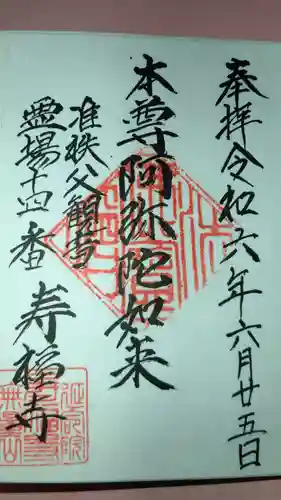 奉拝令和六年六月廿五日
本尊阿弥陀如来
准秩父観音
霊場十四番
寿福寺